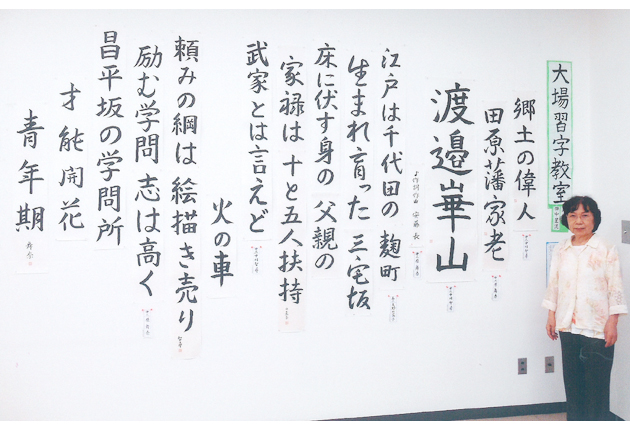 大場習字教室
郷土の偉人
田原藩家老
渡邉崋山
作詞作曲 安藤 長
江戸は千代田の 麹町
生まれ育った 三宅坂
床に伏す身の 父親の
家禄は 十と五人扶持
武家とは言えど
火の車
頼みの綱は 絵描き売り
励む学問 志は高く
昌平坂の学問所
才能開花
青年期